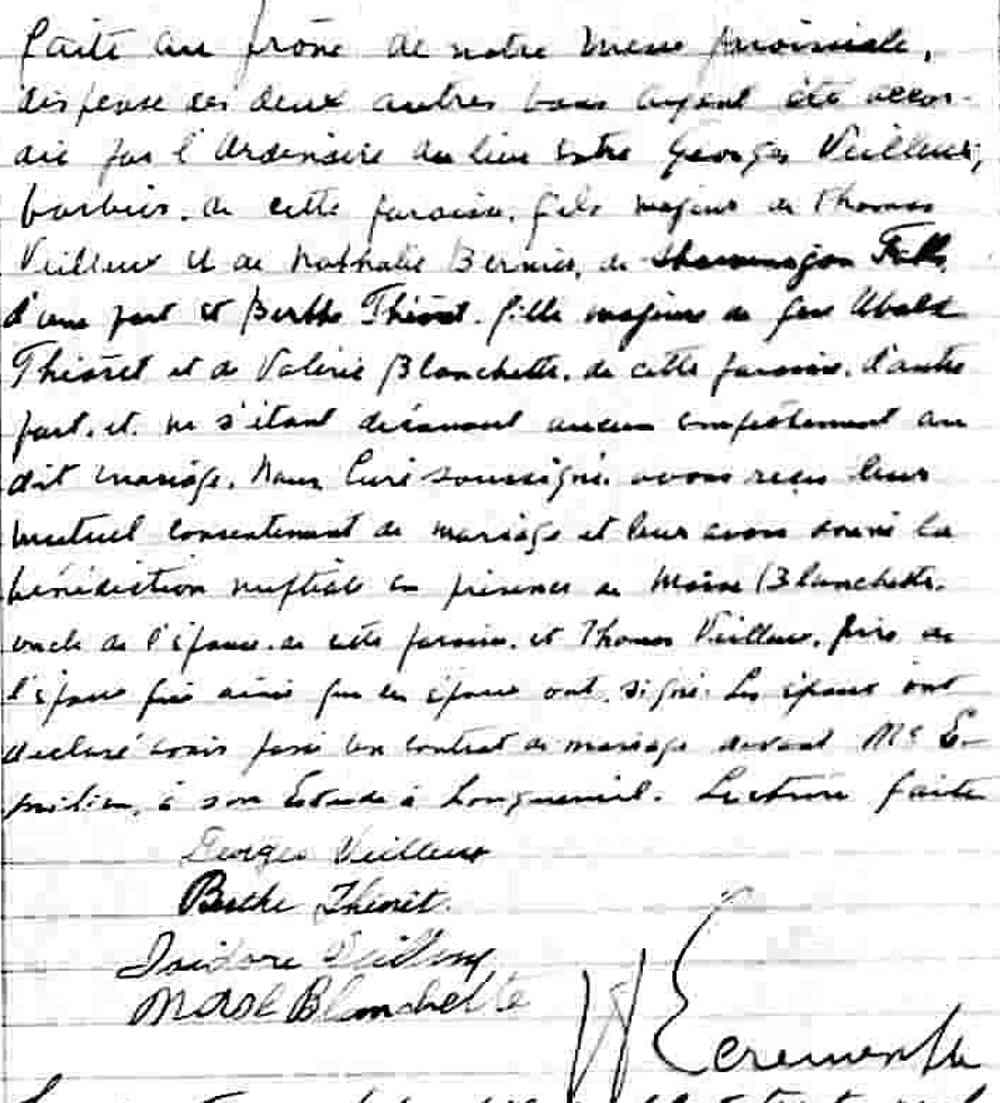 faite au prône de notre messe paroissiale,
dispense des deux autres bans ayant été accor-
dée par l'Ordinaire du lieu entre Georges Veilleux,
barbier, de cette paroisse, fils majeur de Thomas
Veilleux et de Nathalie Bernier, de Shawinigan Falls,
d'une part et Berthe Théoret, fille majeure de feu Ubald
Théoret et de Valérie Blanchette, de cette paroisse, d'autre
part, et ne s'étant découvert aucun empêchement au
dit mariage, Nous, Curé soussigné, avons reçu leur
mutuel consentement de mariage et leur avons donné la
bénédiction nuptiale en présence de Moïse Blanchette,
oncle de l'épouse, de cette paroisse, et Thomas Veilleux, père de
l'époux qui ainsi que les époux ont signé. Les époux ont
déclaré avoir passé un contrat de mariage devant Me
à son Étude à Longueuil. Lecture faite
Georges Veilleux
Berthe Théorêt
Isidore Veilleux
Moïse Blanchette